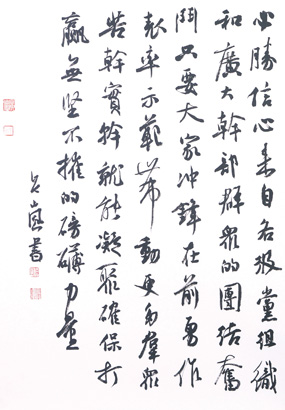 必勝信心来自各級黨組織
和廣大幹部群眾的團结奮
鬥只要大家冲鋒在前勇作
表率示範帶動更多羣眾
苦幹實幹就能凝聚確保打
赢無坚不摧的磅礴力量